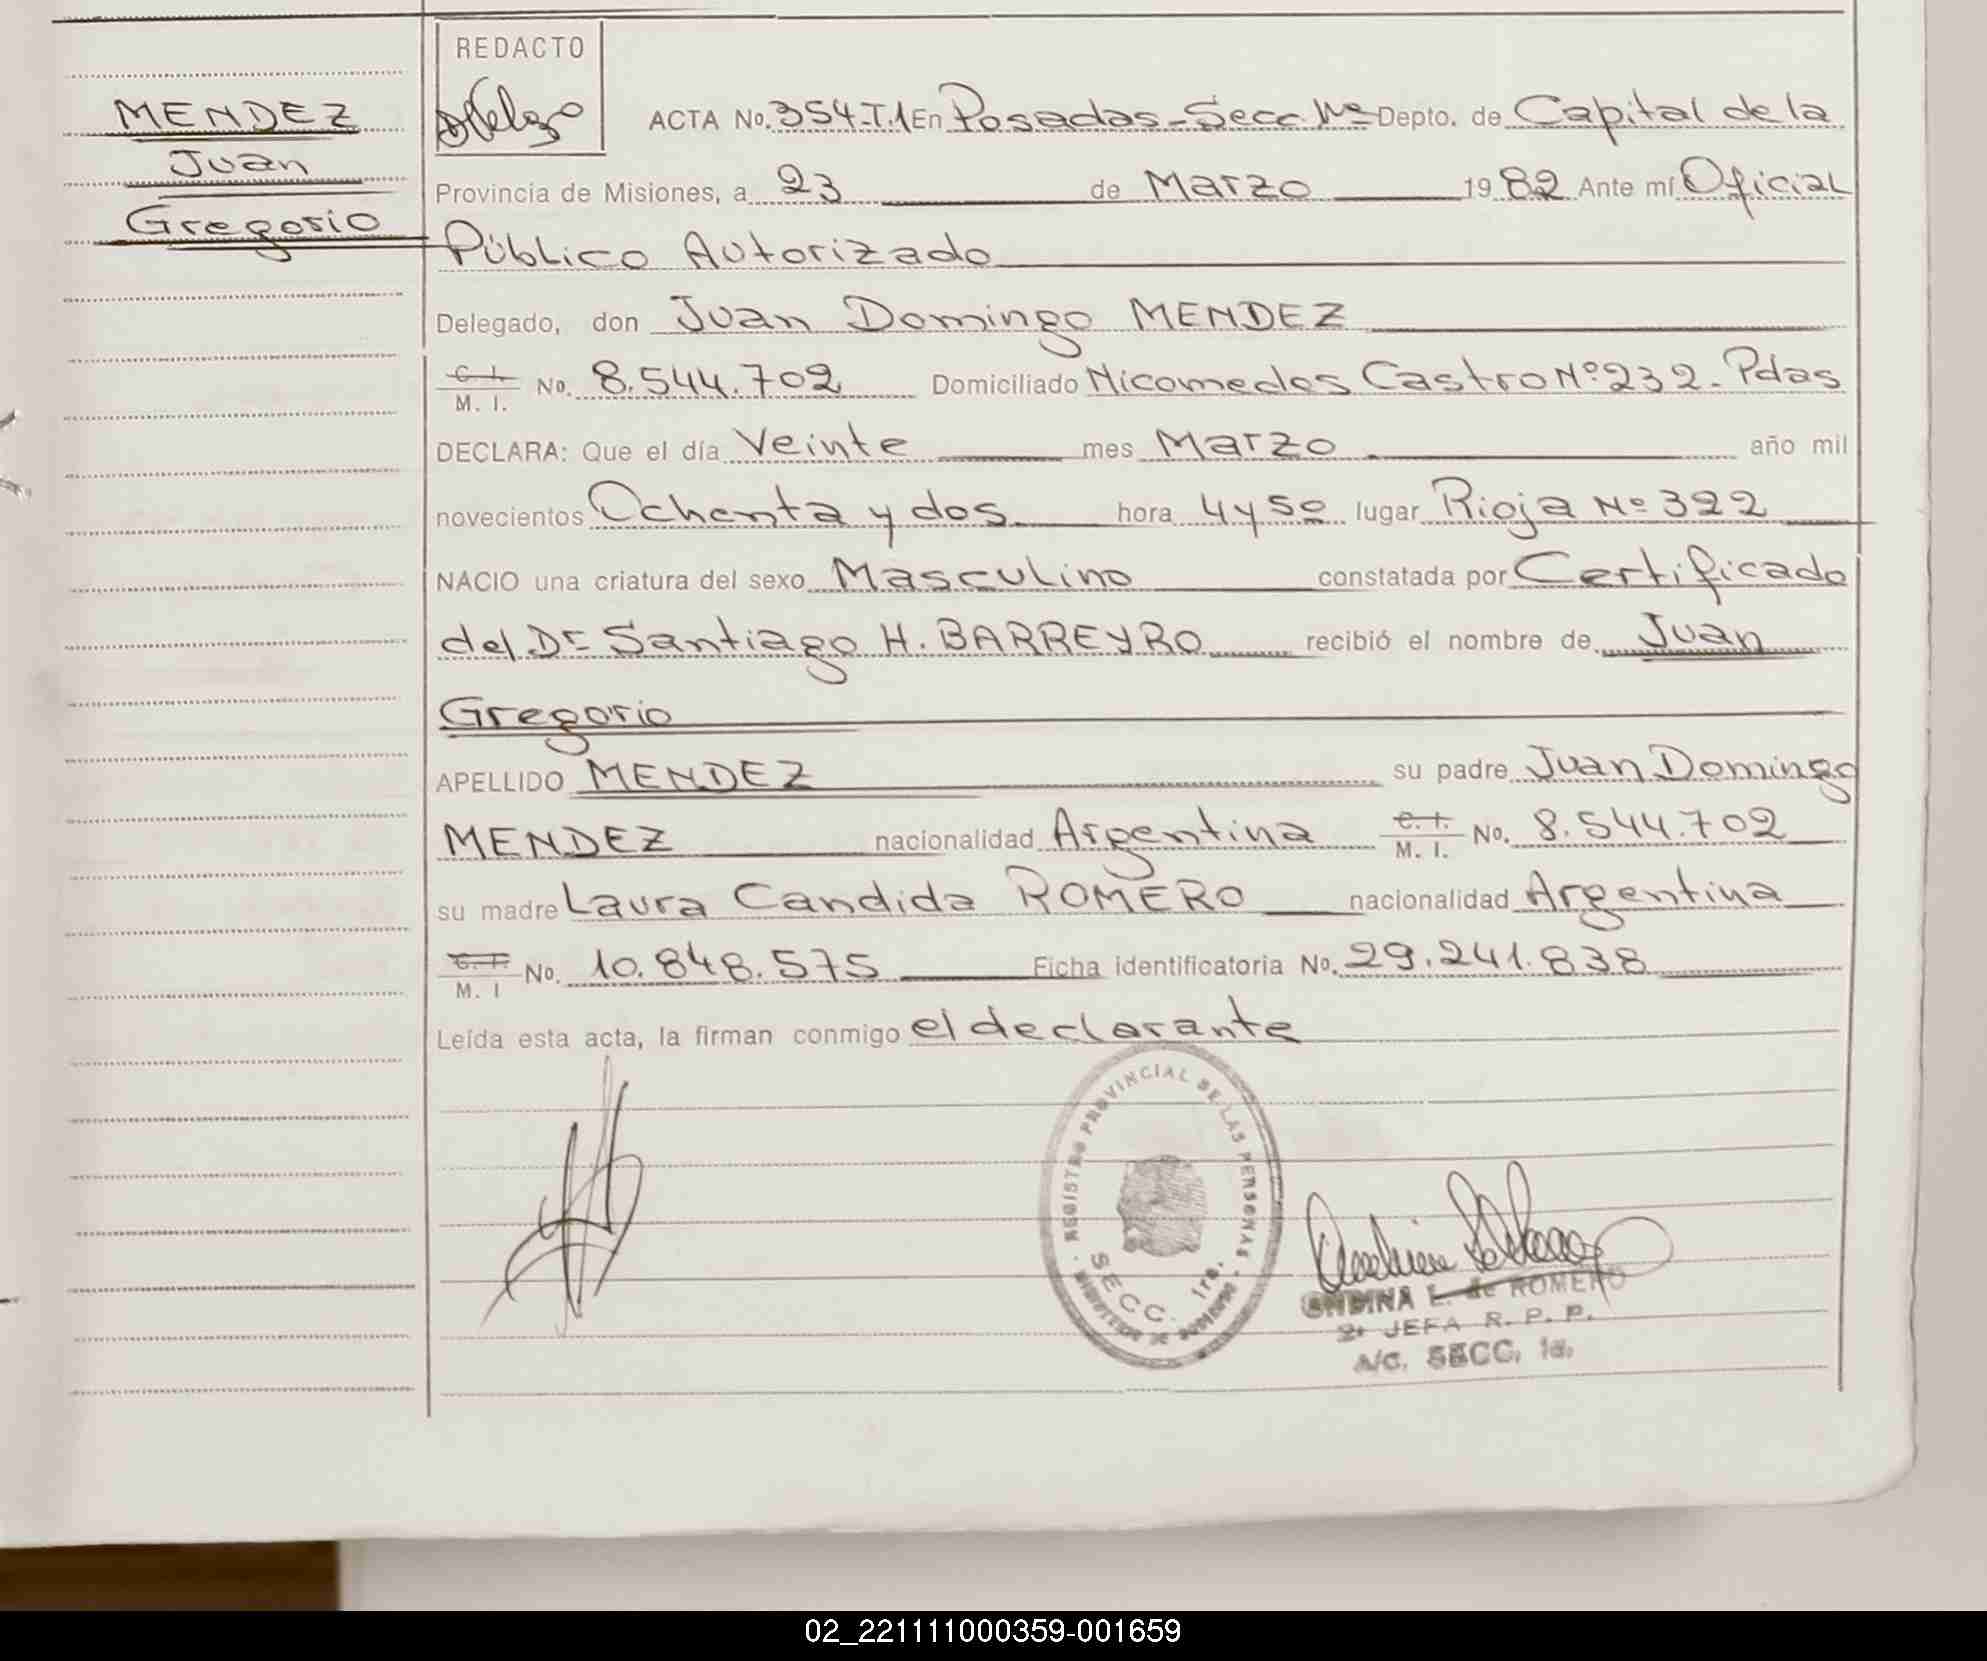 REDACTO
MENDEZ
Juan
Gregorio
ACTA No. 354-T.1 En Posadas-Secc. 1ra Depto. de Capital de la
Provincia de Misiones, a 23 de Marzo 1982 Ante mí Oficial
Público Autorizado
Delegado, don Juan Domingo MENDEZ
C. I. / M. I. No. 8.544.702 Domiciliado Nicomedes Castro Nº 232. Pdas
DECLARA: Que el día Veinte mes Marzo año mil
novecientos Ochenta y dos hora 4 y 50 lugar Rioja Nº 322
NACIO una criatura del sexo Masculino constatada por Certificado
del Dr Santiago H. BARREYRO recibió el nombre de Juan
Gregorio
APELLIDO MENDEZ su padre Juan Domingo
MENDEZ nacionalidad Argentina C. I. / M. I. No. 8.544.702
su madre Laura Candida ROMERO nacionalidad Argentina
C. I. / M. I No. 10.848.575 Ficha identificatoria No. 29.241.838
Leída esta acta, la firman conmigo el declarante
REGISTRO PROVINCIAL DE LAS PERSONAS
SECC. 1ra.
MINISTERIO DE GOBIERNO
ONDINA L. de ROMERO
2ª JEFA R. P. P.
A/C. SECC. 1a.
02_221111000359-001659